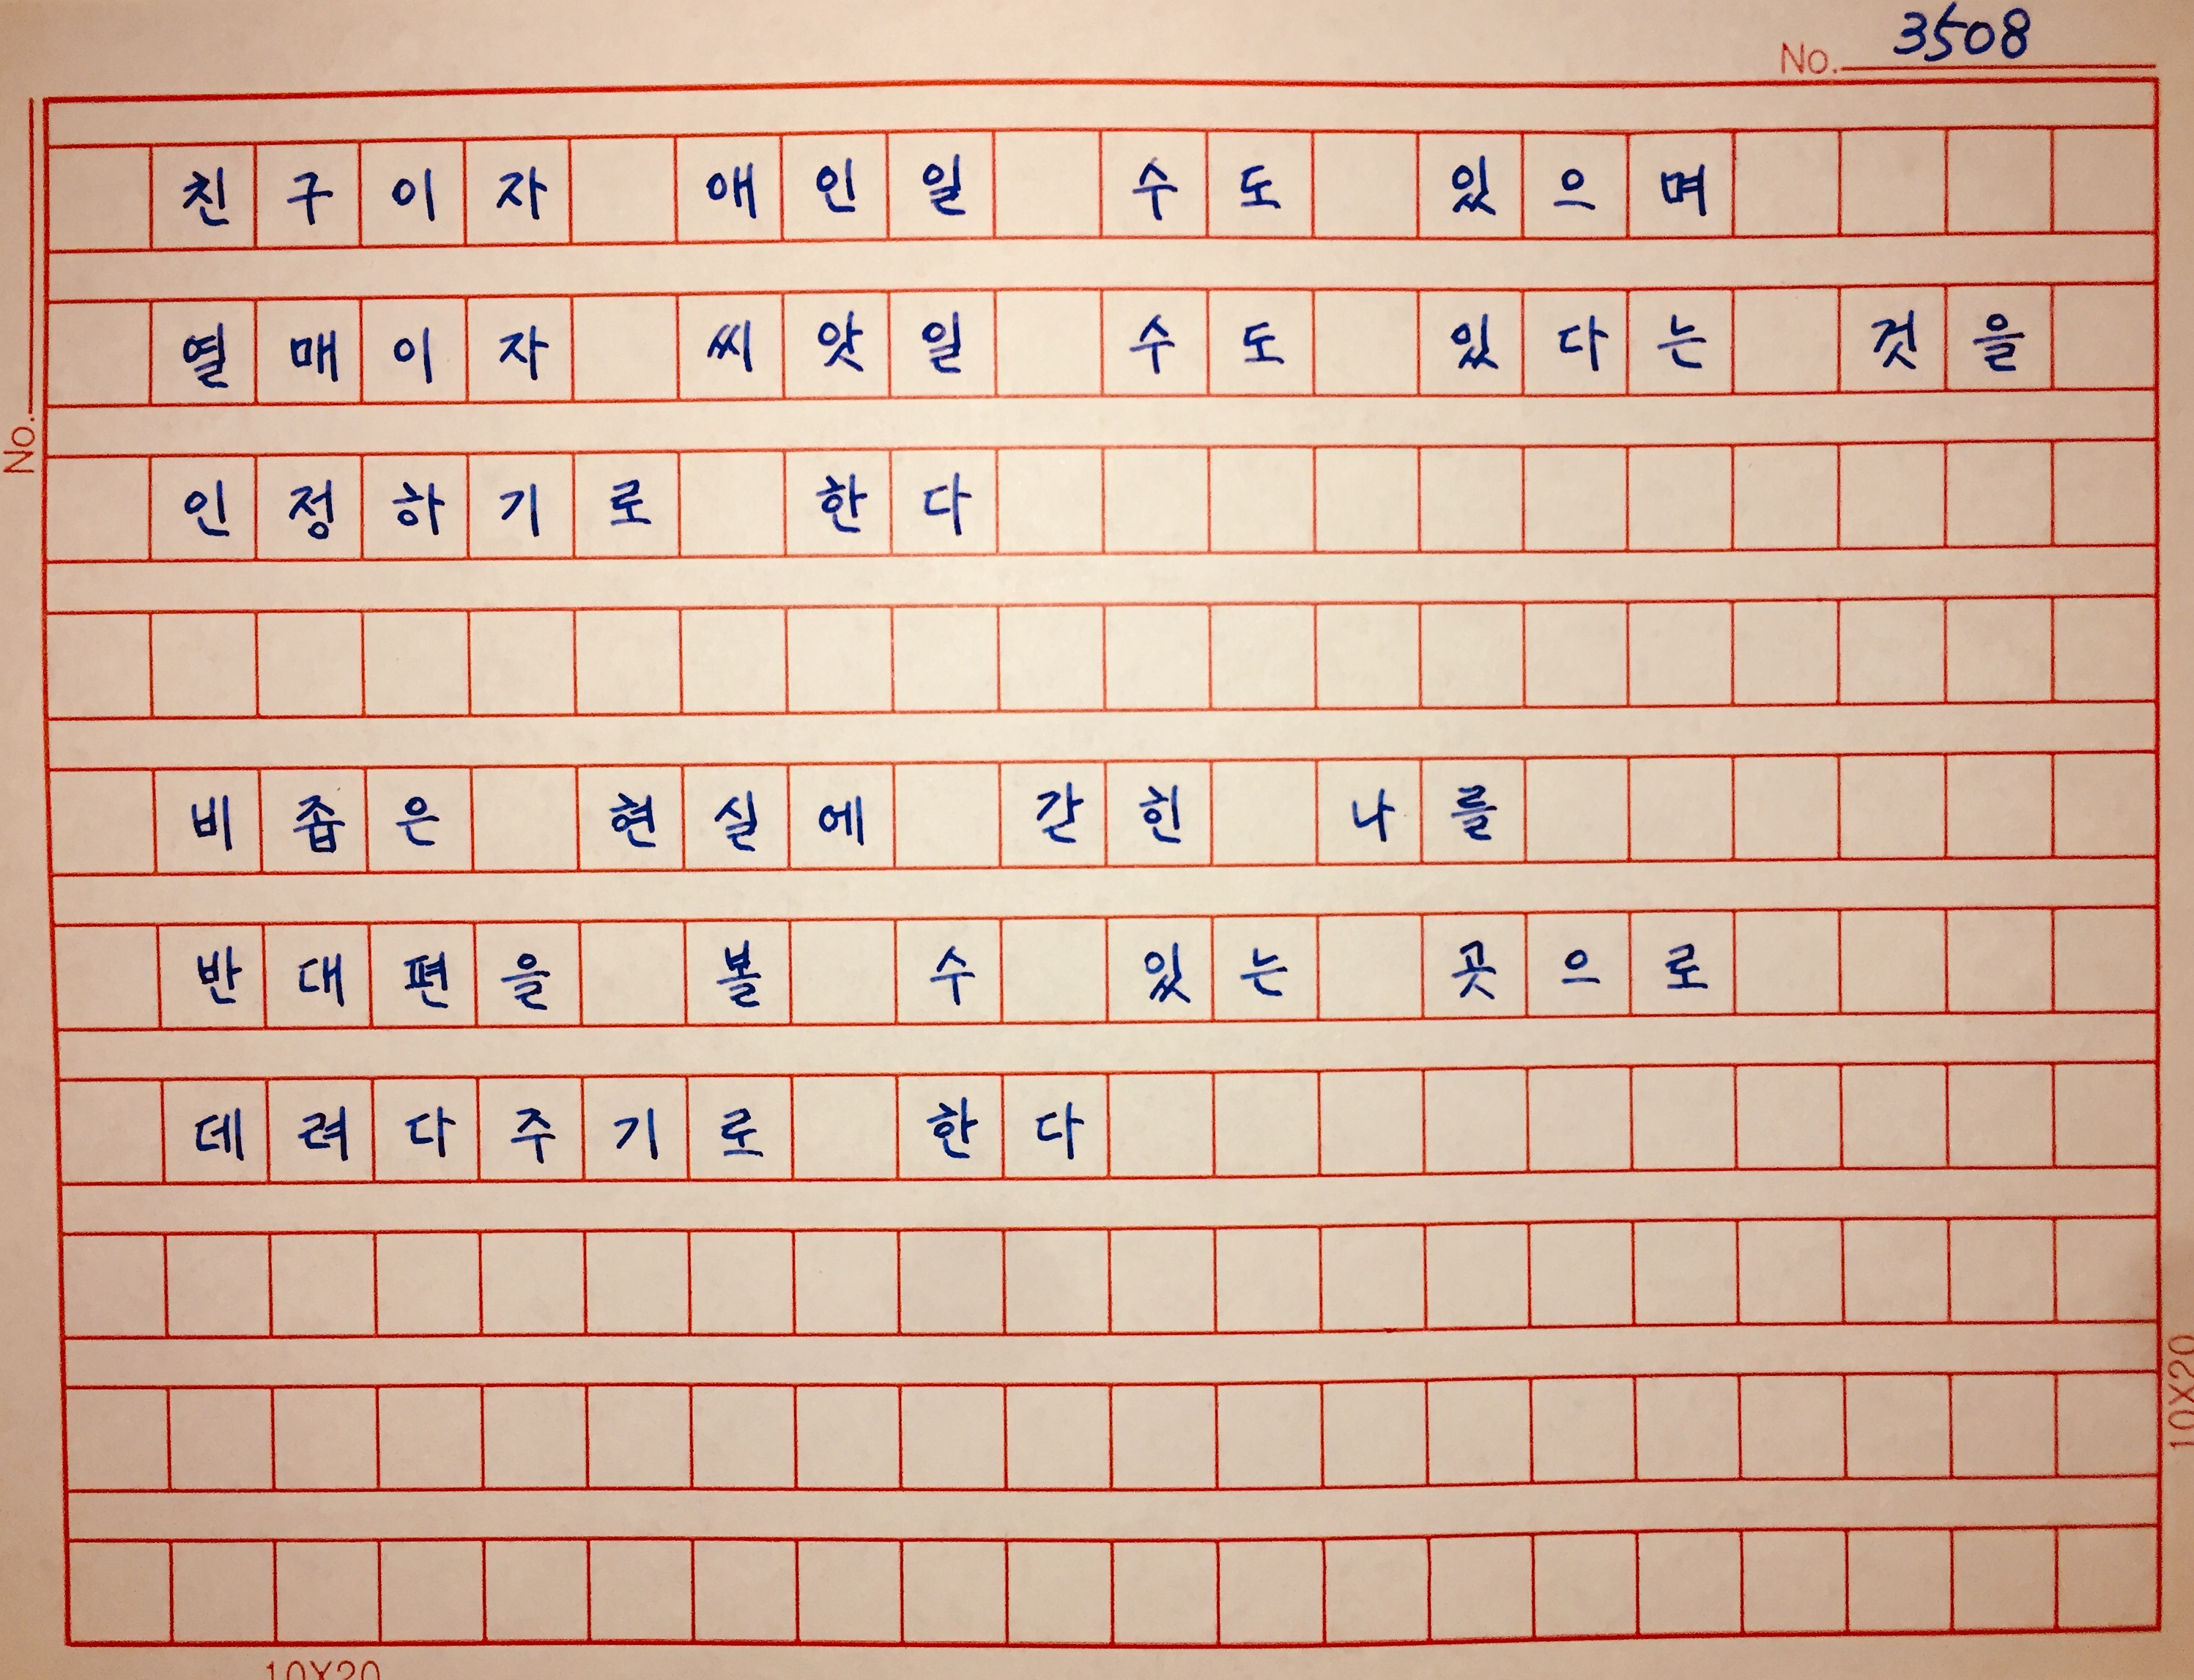 No. 3508
친구이자 애인일 수도 있으며
열매이자 씨앗일 수도 있다는 것을
인정하기로 한다
비좁은 현실에 갇힌 나를
반대편을 볼 수 있는 곳으로
데려다주기로 한다
No.
10X20
10X20